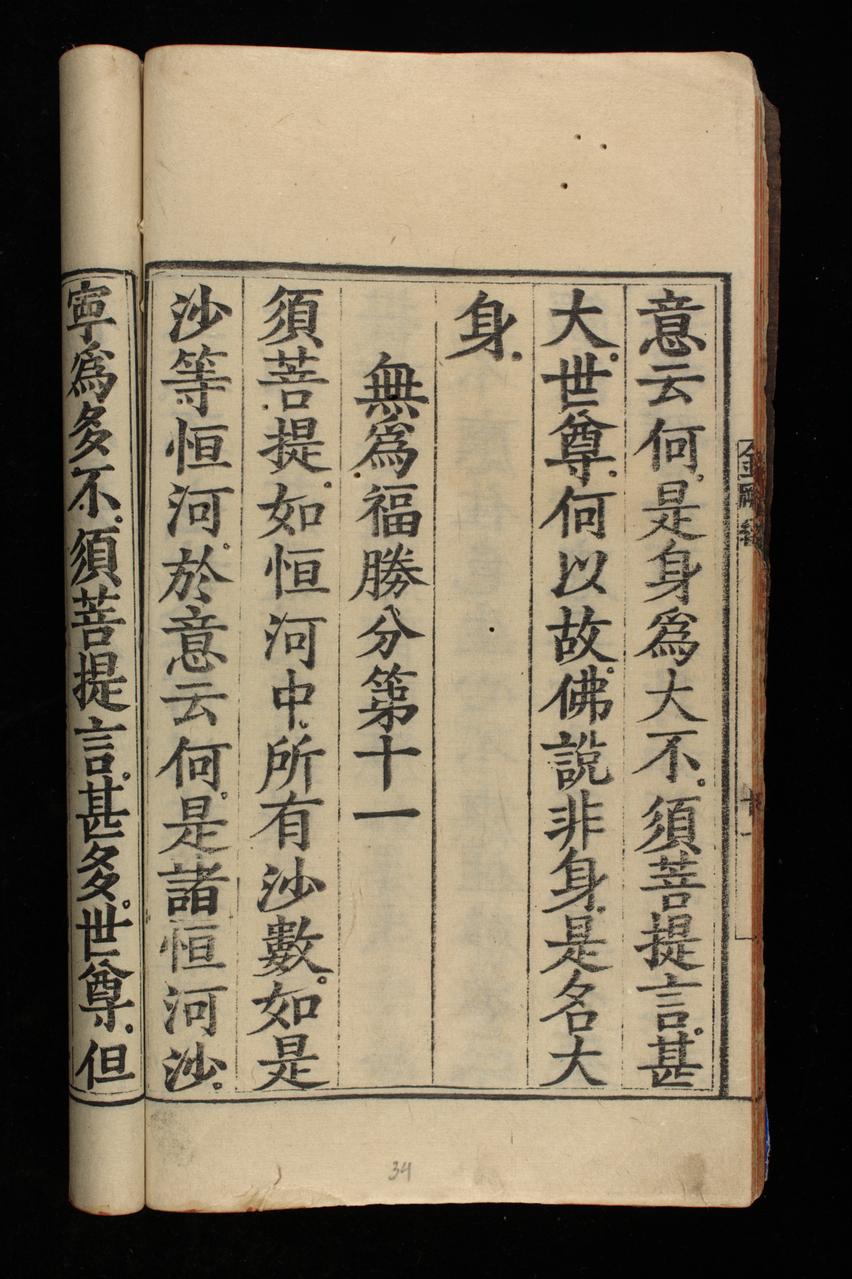 意云何是身爲大不須菩提言甚
大世尊何以故佛說非身是名大
身
無爲福勝分第十一
須菩提如恒河中所有沙數如是
沙等恒河於意云何是諸恒河沙
寧爲多不須菩提言甚多世尊但
34